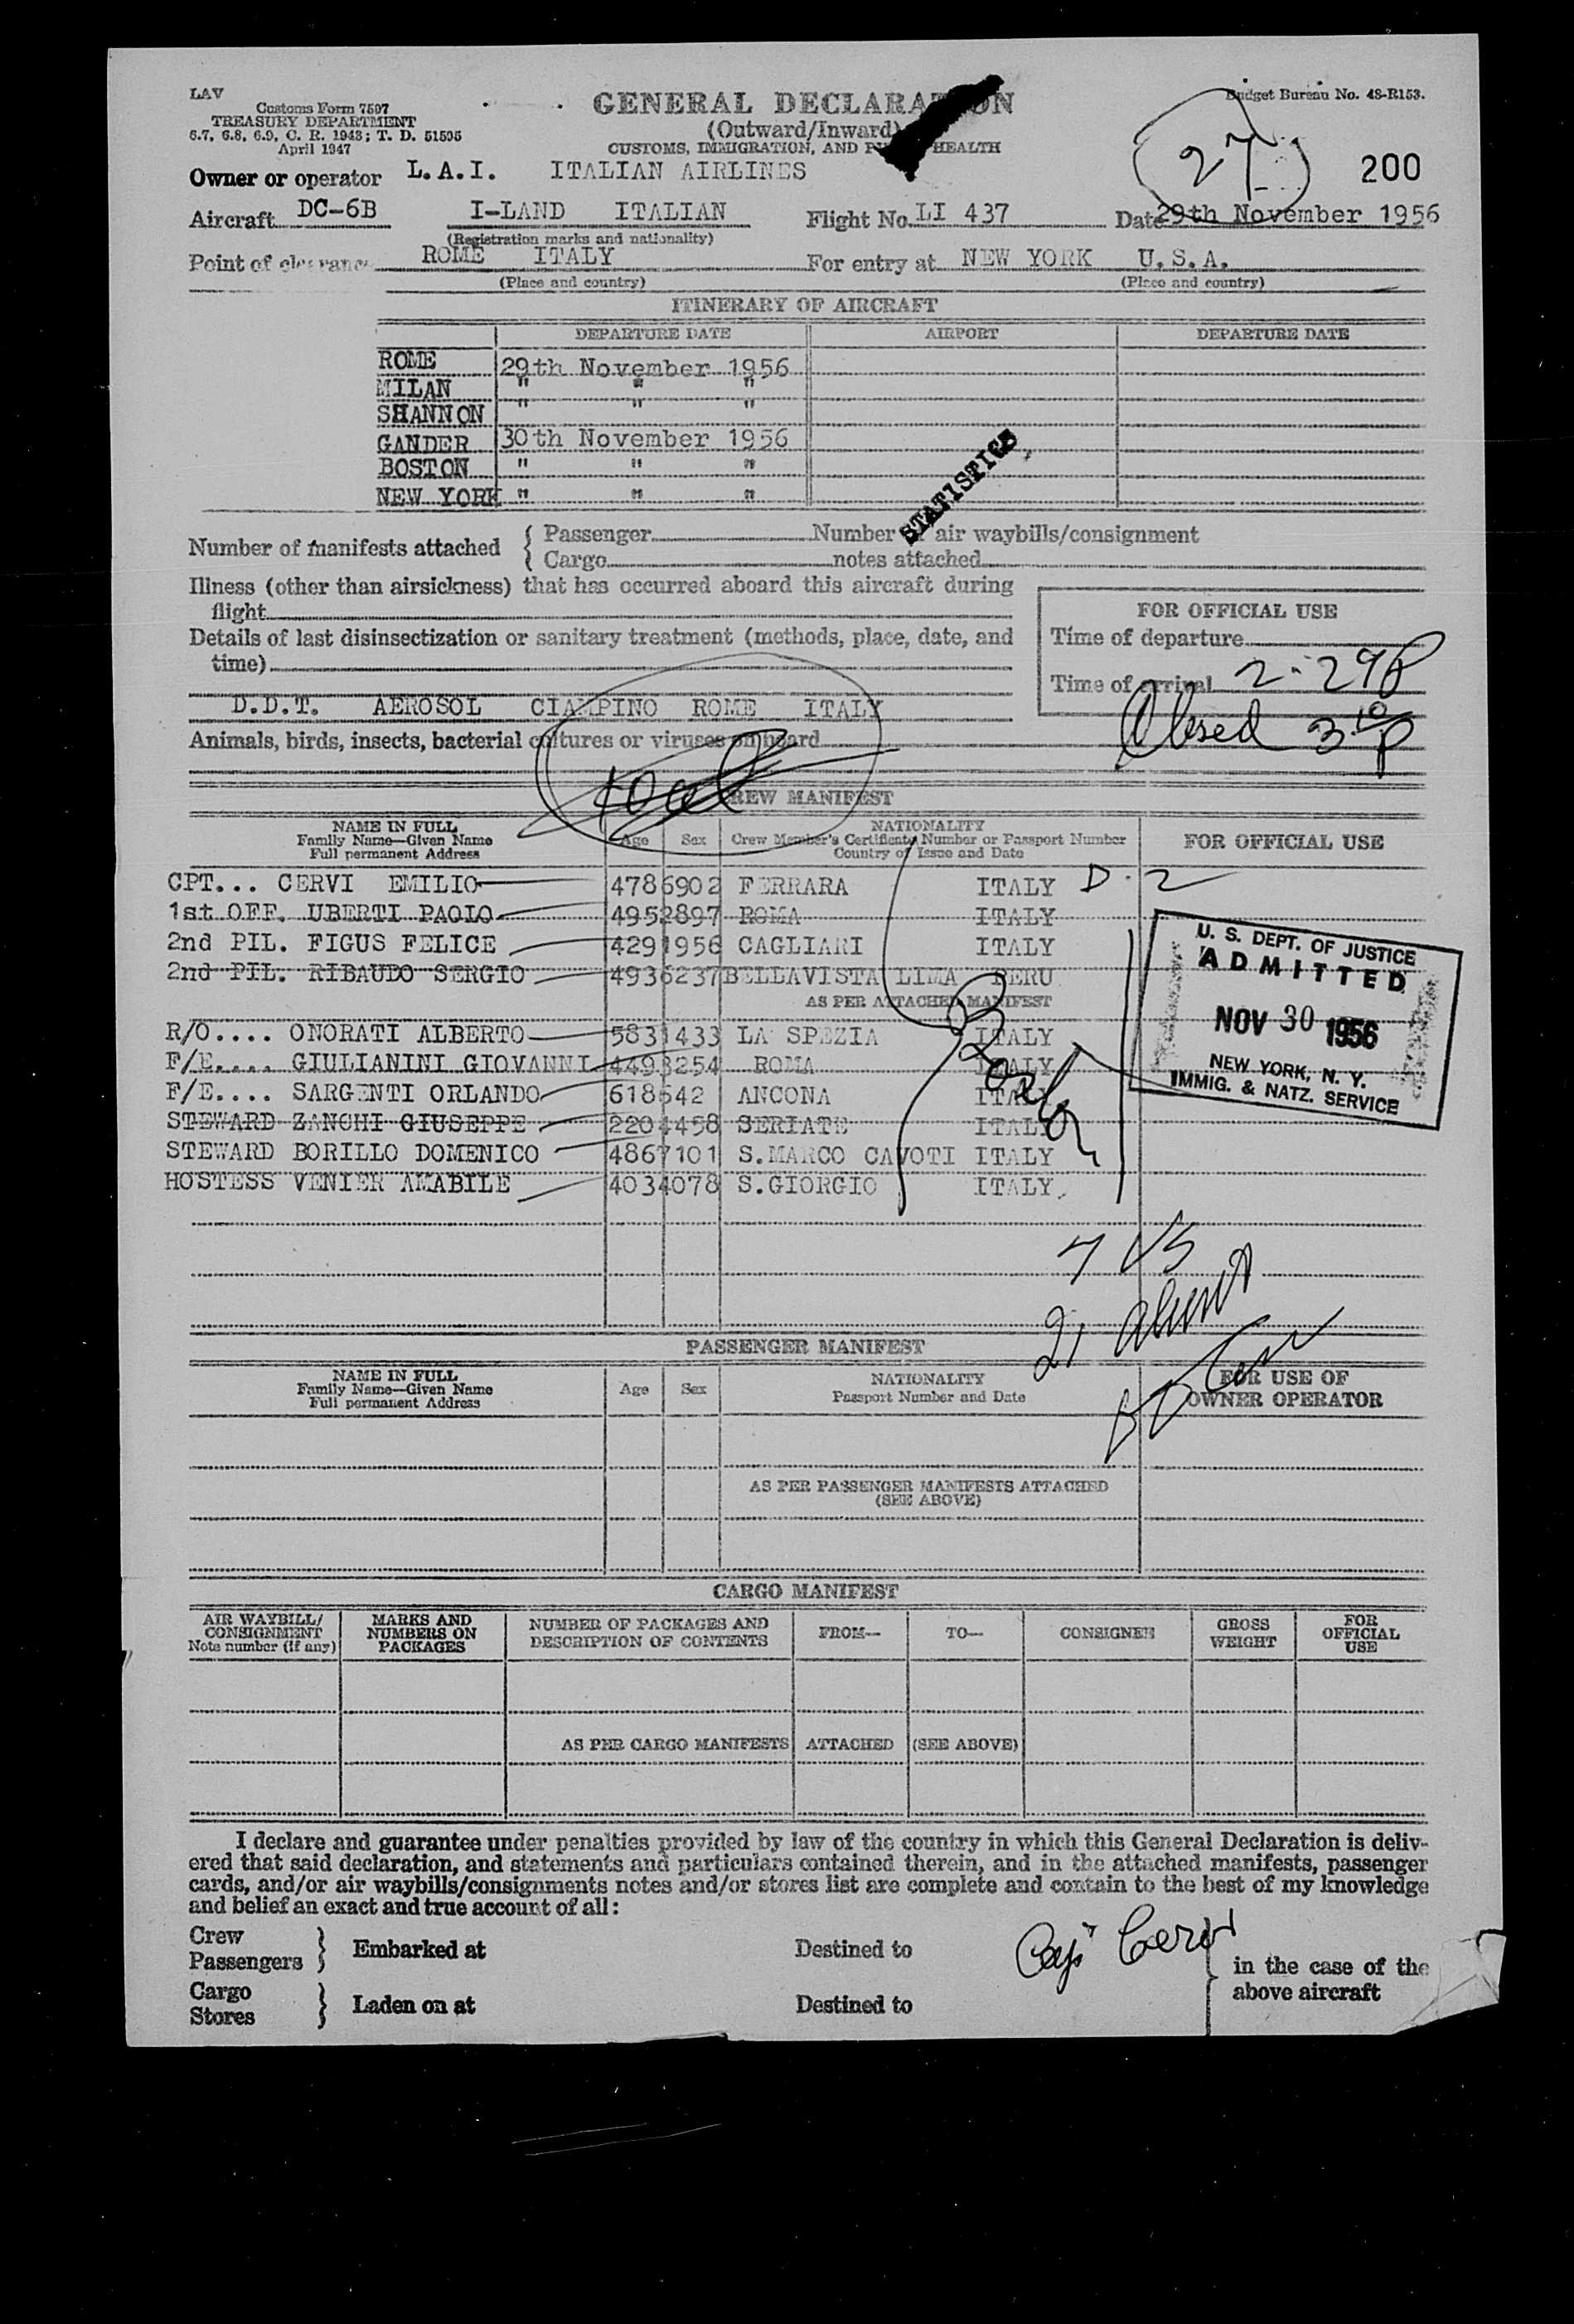 LAV
Customs Form 7507
TREASURY DEPARTMENT
6.7, 6.8, 6.9, C. R. 1943; T. D. 51595
April 1947
GENERAL DECLARATION
(Outward/Inward)
CUSTOMS, IMMIGRATION, AND PUBLIC HEALTH
Budget Bureau No. 48-R153.
27
200
Owner or operator L.A.I. ITALIAN AIRLINES
Aircraft DC-6B I-LAND ITALIAN Flight No. LI 437 Date 29th November 1956
(Registration marks and nationality)
Point of clearance ROME ITALY For entry at NEW YORK U.S.A.
(Place and country) (Place and country)
ITINERARY OF AIRCRAFT
DEPARTURE DATE AIRPORT DEPARTURE DATE
ROME 29th November 1956
MILAN " " "
SHANNON " " "
GANDER 30th November 1956
BOSTON " " "
NEW YORK " " "
STATISTICS
Number of manifests attached { Passenger Number of air waybills/consignment
Cargo notes attached
Illness (other than airsickness) that has occurred aboard this aircraft during
flight
Details of last disinsectization or sanitary treatment (methods, place, date, and
time)
D.D.T. AEROSOL CIAMPINO ROME ITALY
Animals, birds, insects, bacterial cultures or viruses on board
FOR OFFICIAL USE
Time of departure
Time of arrival 2-29P
Closed 3 10 P
CREW MANIFEST
NAME IN FULL
Family Name—Given Name
Full permanent Address
Age Sex
NATIONALITY
Crew Member's Certificate Number or Passport Number
Country of Issue and Date
FOR OFFICIAL USE
CPT... CERVI EMILIO 4786902 FERRARA ITALY D-2
1st OFF. UBERTI PAOLO 4952897 ROMA ITALY
2nd PIL. FIGUS FELICE 4291956 CAGLIARI ITALY
2nd PIL. RIBAUDO SERGIO 4936237 BELLAVISTA LIMA PERU
AS PER ATTACHED MANIFEST
R/O.... ONORATI ALBERTO 5831433 LA SPEZIA ITALY
F/E.... GIULIANINI GIOVANNI 4493254 ROMA ITALY
F/E.... SARGENTI ORLANDO 618642 ANCONA ITALY
STEWARD ZANCHI GIUSEPPE 2204458 SERIATE ITALY
STEWARD BORILLO DOMENICO 4867101 S.MARCO CAVOTI ITALY
HOSTESS VENIER AMABILE 4034078 S.GIORGIO ITALY
U. S. DEPT. OF JUSTICE
ADMITTED
NOV 30 1956
NEW YORK, N. Y.
IMMIG. & NATZ. SERVICE
PASSENGER MANIFEST
NAME IN FULL
Family Name—Given Name
Full permanent Address
Age Sex
NATIONALITY
Passport Number and Date
FOR USE OF
OWNER OPERATOR
AS PER PASSENGER MANIFESTS ATTACHED
(SEE ABOVE)
CARGO MANIFEST
AIR WAYBILL/
CONSIGNMENT
Note number (if any)
MARKS AND
NUMBERS ON
PACKAGES
NUMBER OF PACKAGES AND
DESCRIPTION OF CONTENTS
FROM—
TO—
CONSIGNEE
GROSS
WEIGHT
FOR
OFFICIAL
USE
AS PER CARGO MANIFESTS ATTACHED (SEE ABOVE)
I declare and guarantee under penalties provided by law of the country in which this General Declaration is deliv-
ered that said declaration, and statements and particulars contained therein, and in the attached manifests, passenger
cards, and/or air waybills/consignments notes and/or stores list are complete and contain to the best of my knowledge
and belief an exact and true account of all:
Crew
Passengers } Embarked at Destined to
Cargo
Stores } Laden on at Destined to
in the case of the
above aircraft